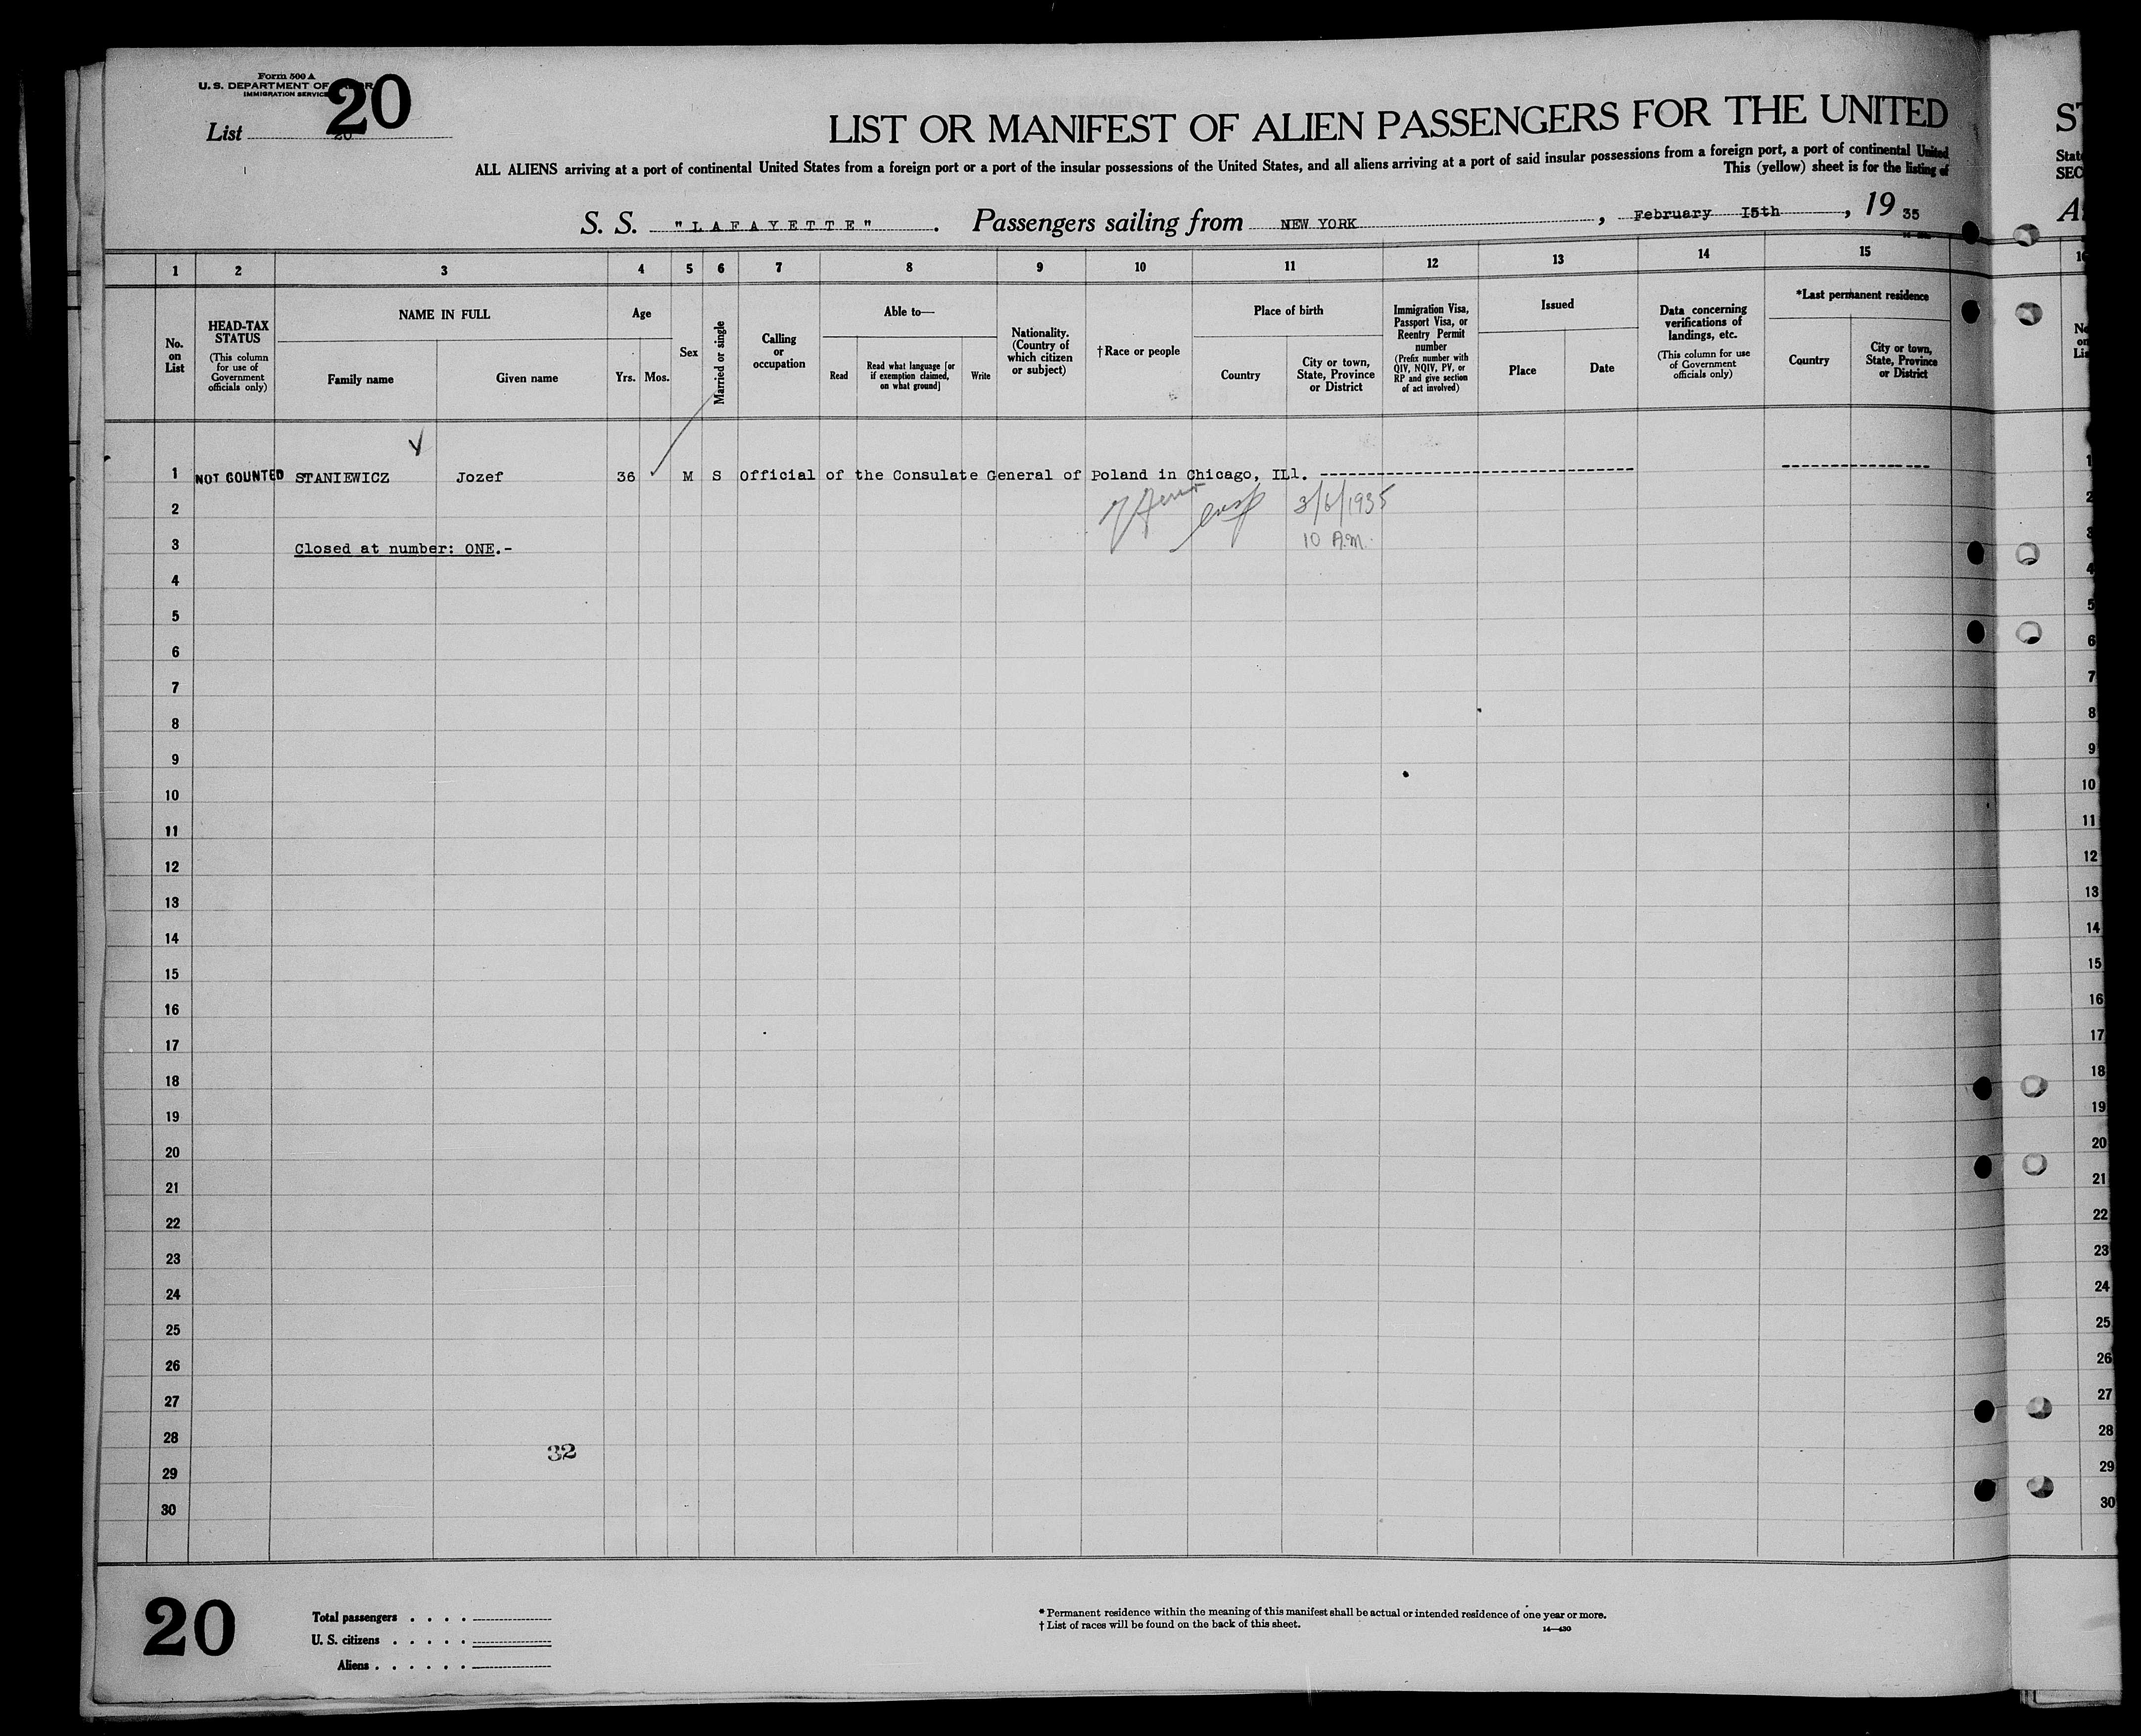 Form 500 A
U. S. DEPARTMENT OF
IMMIGRATION SERVICE
20
List 20
LIST OR MANIFEST OF ALIEN PASSENGERS FOR THE UNITED
ALL ALIENS arriving at a port of continental United States from a foreign port or a port of the insular possessions of the United States, and all aliens arriving at a port of said insular possessions from a foreign port, a port of continental United
This (yellow) sheet is for the listing of
S. S. "LAFAYETTE". Passengers sailing from NEW YORK, February 15th, 19 35
1 2 3 4 5 6 7 8 9 10 11 12 13 14 15
No. on List
HEAD-TAX STATUS
(This column for use of Government officials only)
NAME IN FULL
Family name
Given name
Age
Yrs. Mos.
Sex
Married or single
Calling or occupation
Able to—
Read
Read what language [or if exemption claimed, on what ground]
Write
Nationality. (Country of which citizen or subject)
†Race or people
Place of birth
Country
City or town, State, Province or District
Immigration Visa, Passport Visa, or Reentry Permit number
(Prefix number with QIV, NQIV, PV, or RP and give section of act involved)
Issued
Place
Date
Data concerning verifications of landings, etc.
(This column for use of Government officials only)
*Last permanent residence
Country
City or town, State, Province or District
1 NOT COUNTED STANIEWICZ Jozef 36 M S Official of the Consulate General of Poland in Chicago, ILl.
2 3/6/1935
3 Closed at number: ONE.- 10 A.M.
4
5
6
7
8
9
10
11
12
13
14
15
16
17
18
19
20
21
22
23
24
25
26
27
28
32
29
30
20
Total passengers
U. S. citizens
Aliens
* Permanent residence within the meaning of this manifest shall be actual or intended residence of one year or more.
† List of races will be found on the back of this sheet.
14—430